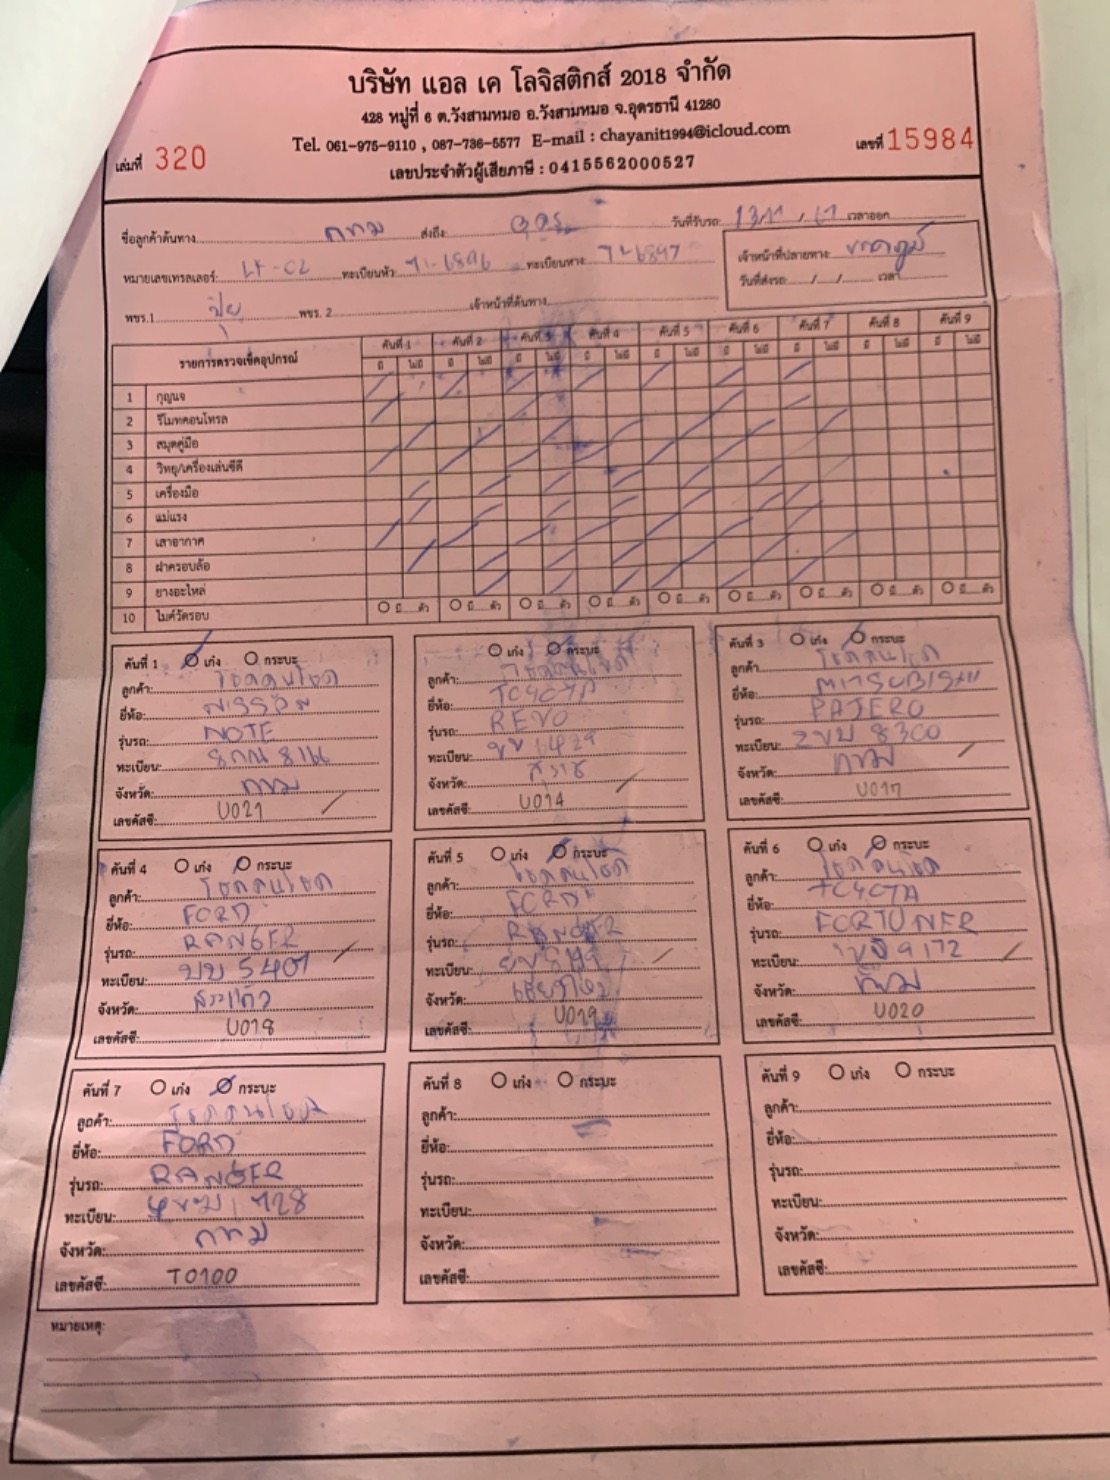 บริษัท แอล เค โลจิสติกส์ 2018 จำกัด
428 หมู่ที่ 6 ต.วังสามหมอ อ.วังสามหมอ จ.อุดรธานี 41280
Tel. 061-975-9110 , 087-736-5577 E-mail : chayanit1994@icloud.com
เลขประจำตัวผู้เสียภาษี : 0415562000527
เล่มที่ 320
เลขที่ 15984
ชื่อลูกค้าต้นทาง กทม ส่งถึง อุดร วันที่รับรถ เวลาออก
หมายเลขเทรลเลอร์: LK-02 ทะเบียนหัว: 71-6896 ทะเบียนหาง: 71-6897
เจ้าหน้าที่ปลายทาง:
วันที่ส่งรถ: / / เวลา
พขร.1 ปุ้ย พขร. 2 เจ้าหน้าที่ต้นทาง
รายการตรวจเช็คอุปกรณ์ คันที่ 1 คันที่ 2 คันที่ 3 คันที่ 4 คันที่ 5 คันที่ 6 คันที่ 7 คันที่ 8 คันที่ 9
มี ไม่มี มี ไม่มี มี ไม่มี มี ไม่มี มี ไม่มี มี ไม่มี มี ไม่มี มี ไม่มี มี ไม่มี
1 กุญแจ
2 รีโมทคอนโทรล
3 สมุดคู่มือ
4 วิทยุ/เครื่องเล่นซีดี
5 เครื่องมือ
6 แม่แรง
7 เสาอากาศ
8 ฝาครอบล้อ
9 ยางอะไหล่
10 ไมค์วัดรอบ มี ตัว มี ตัว มี ตัว มี ตัว มี ตัว มี ตัว มี ตัว มี ตัว มี ตัว
คันที่ 1 เก๋ง กระบะ
ลูกค้า: โชคคนโชค
ยี่ห้อ: NISSAN
รุ่นรถ: NOTE
ทะเบียน:
จังหวัด: กทม
เลขคัสซี: U021
เก๋ง กระบะ
ลูกค้า: โชคคนโชค
ยี่ห้อ: TOYOTA
รุ่นรถ: REVO
ทะเบียน:
จังหวัด:
เลขคัสซี: U014
คันที่ 3 เก๋ง กระบะ
ลูกค้า: โชคคนโชค
ยี่ห้อ: MITSUBISHI
รุ่นรถ: PAJERO
ทะเบียน: 2ขบ 8300
จังหวัด: กทม
เลขคัสซี: U017
คันที่ 4 เก๋ง กระบะ
ลูกค้า: โชคคนโชค
ยี่ห้อ: FORD
รุ่นรถ: RANGER
ทะเบียน: บบ 5401
จังหวัด: สระแก้ว
เลขคัสซี: U018
คันที่ 5 เก๋ง กระบะ
ลูกค้า: โชคคนโชค
ยี่ห้อ: FORD
รุ่นรถ: RANGER
ทะเบียน:
จังหวัด: เชียงใหม่
เลขคัสซี: U019
คันที่ 6 เก๋ง กระบะ
ลูกค้า: โชคคนโชค
ยี่ห้อ: TOYOTA
รุ่นรถ: FORTUNER
ทะเบียน: 9172
จังหวัด: กทม
เลขคัสซี: U020
คันที่ 7 เก๋ง กระบะ
ลูกค้า: โชคคนโชค
ยี่ห้อ: FORD
รุ่นรถ: RANGER
ทะเบียน:
จังหวัด: กทม
เลขคัสซี: T0100
คันที่ 8 เก๋ง กระบะ
ลูกค้า:
ยี่ห้อ:
รุ่นรถ:
ทะเบียน:
จังหวัด:
เลขคัสซี:
คันที่ 9 เก๋ง กระบะ
ลูกค้า:
ยี่ห้อ:
รุ่นรถ:
ทะเบียน:
จังหวัด:
เลขคัสซี:
หมายเหตุ: